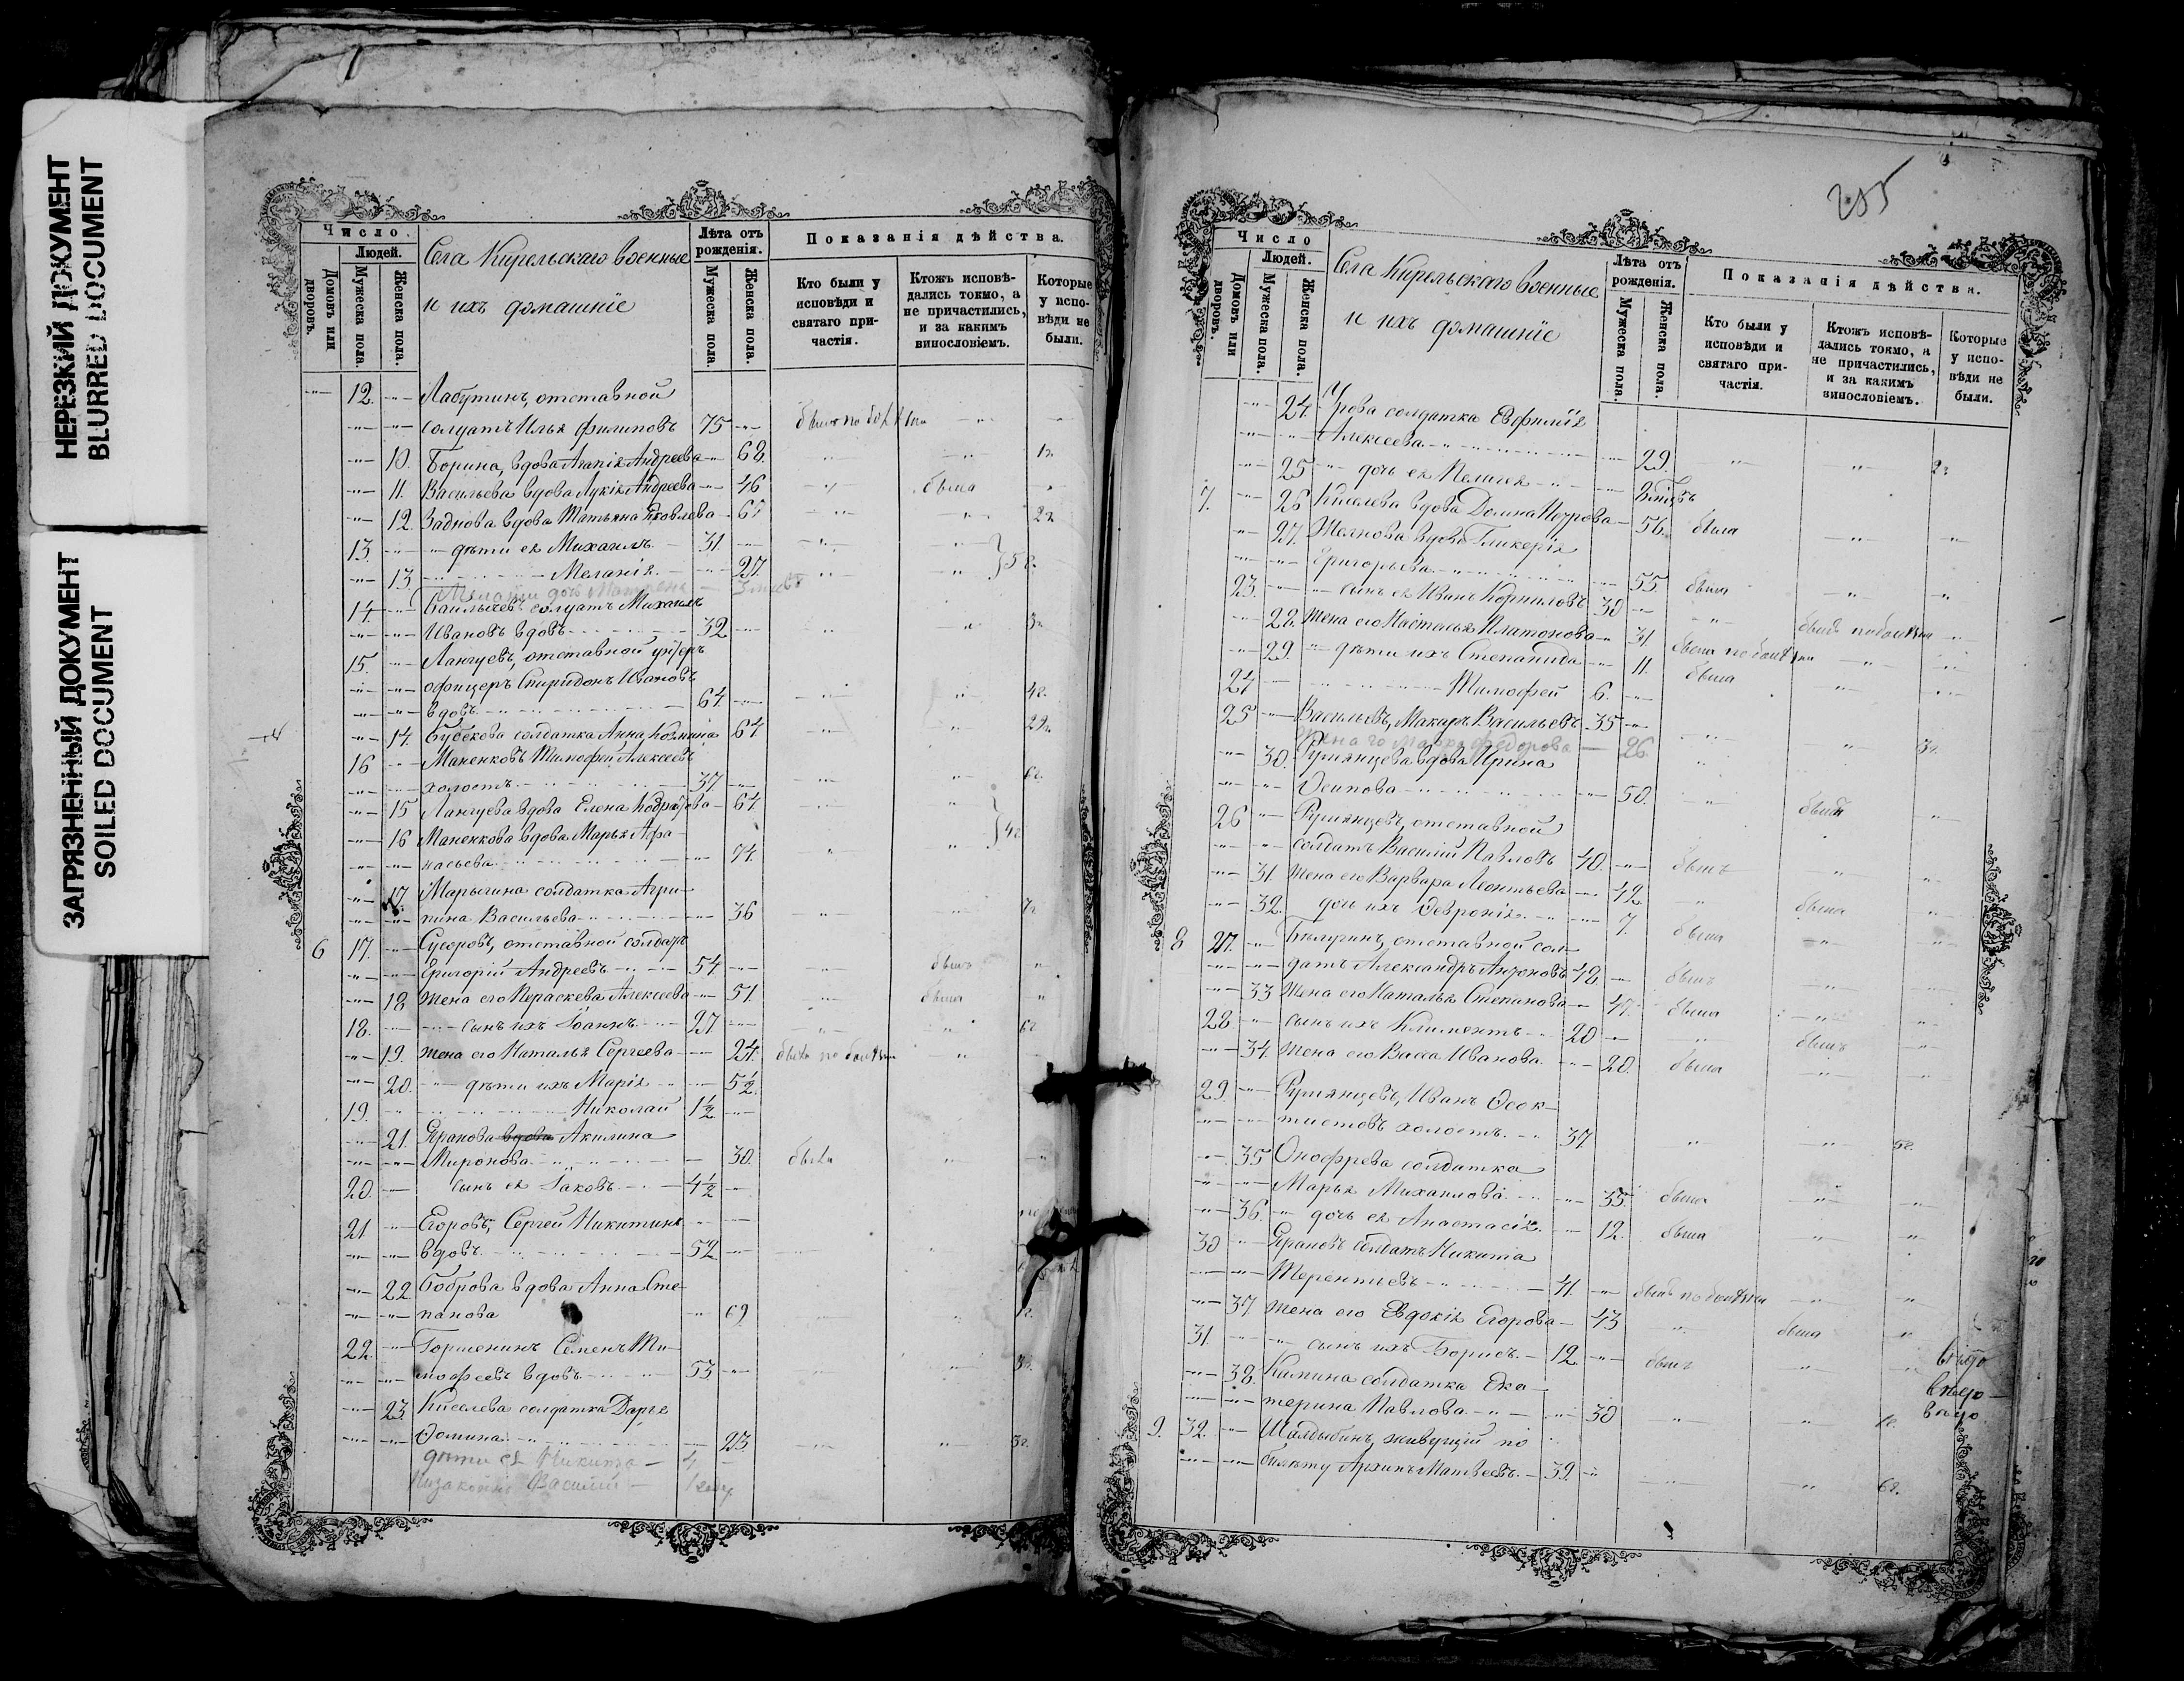 НЕРЕЗКИЙ ДОКУМЕНТ
BLURRED DOCUMENT
ЗАГРЯЗНЕННЫЙ ДОКУМЕНТ
SOILED DOCUMENT
Число.
Людей.
Домовъ или дворовъ.
Мужеска пола.
Женска пола.
Села Кирельскаго военные
и ихъ домашніе
Лѣта отъ рожденія.
Мужеска пола.
Женска пола.
Показанія дѣйства.
Кто были у исповѣди и святаго причастія.
Ктожъ исповѣдались токмо, а не причастились, и за какимъ винословіемъ.
Которые у исповѣди не были.
12. Лабутинъ, отставной
солдатъ Илья Филиповъ 75
10. Борина, вдова Агапія Андреева 68. 1г.
11. Васильева вдова Лукія Андреева 46 была
12. Заднова вдова Татьяна Яковлева 67 2г.
13. дѣти ея Михаилъ 31. 5г.
13 Меланія 27.
14. солдатъ Михаилъ
Ивановъ вдовъ 32 3г.
15. Лангуевъ, отставной унтеръ
офицеръ Спиридонъ Ивановъ
вдовъ 64 4г.
14. Бубекова солдатка Анна Козмина 64. 2г.
16 Маненковъ Тимофей Алексеевъ
холостъ 37 6г.
15 Лангуева вдова Елена 64. 4г
16 Маненкова вдова Марья Афа-
насьева 74.
17. Марычина солдатка Агри-
пина Васильева 36 7г
6 17. Суворовъ, отставной солдатъ
Григорій Андреевъ 54. былъ
18 жена его Пераскева Алексеева 51. была
18. сынъ ихъ Іоаннъ 27 6г
19. жена его Наталья Сергеева 24. была по болѣзни
20. дѣти ихъ Марія 5½.
19. Николай 1½
21. Еранова вдова Акилина
Миронова 30. была
20. сынъ ея Іаковъ 4½
21 Егоровъ, Сергей Никитинъ
вдовъ 52
22. Боброва вдова Анна Сте-
панова 69
22. Горшенинъ Семенъ Ти-
мофеевъ вдовъ 53 3г.
23. Киселева солдатка Дарья
Фомина 23. 3г.
дѣти ея Никита 4
Василій 1 году
255
Число
Людей.
Домовъ или дворовъ.
Мужеска пола.
Женска пола.
Села Кирельскаго военные
и ихъ домашніе
Лѣта отъ рожденія.
Мужеска пола.
Женска пола.
Показанія дѣйства.
Кто были у исповѣди и святаго причастія.
Ктожъ исповѣдались токмо, а не причастились, и за какимъ винословіемъ.
Которые у исповѣди не были.
24. солдатка Евфимія
Алексеева 29. 2г
25 дочь ея
7. 26 Киселева вдова Домна Петрова 56. была
27. вдова Гликерія
Григорьева 55. была
23. сынъ ея Иванъ Корниловъ 30
28. жена его Настасья Платонова 31. была по болѣзни
29. дѣти ихъ Степанида 11. была
24 Тимофей 6.
25 Васильевъ, Макаръ Васильевъ 35 3г.
жена его Марфа Федорова 26.
30. Румянцева вдова Ирина
Осипова 50. была
26 Румянцевъ, отставной
солдатъ Василій Павловъ 40. былъ
31. жена его Варвара Леонтьева 42. была
32. дочь ихъ Февронія 7. была
8 27. отставной сол-
датъ Александръ Антоновъ 48. былъ
33 жена его Наталья Степанова 47. была
28. сынъ ихъ Климентъ 20 былъ
34. жена его Васса Иванова 20. была
29. Румянцевъ, Иванъ Феок-
тистовъ холостъ 37 5г.
35 Онофрева солдатка
Марья Михаилова 35. была
36. дочь ея Анастасія 12. была
30 Ерановъ солдатъ Никита
Терентьевъ 41. былъ по болѣзни
37 жена его Евдокія Егорова 43 была
31. сынъ ихъ Борисъ 12. былъ
38. Калина солдатка Ека-
терина Павлова 30
9. 32. Шалдыбинъ, живущій по
билету Архипъ Матвеевъ 39. 6г.